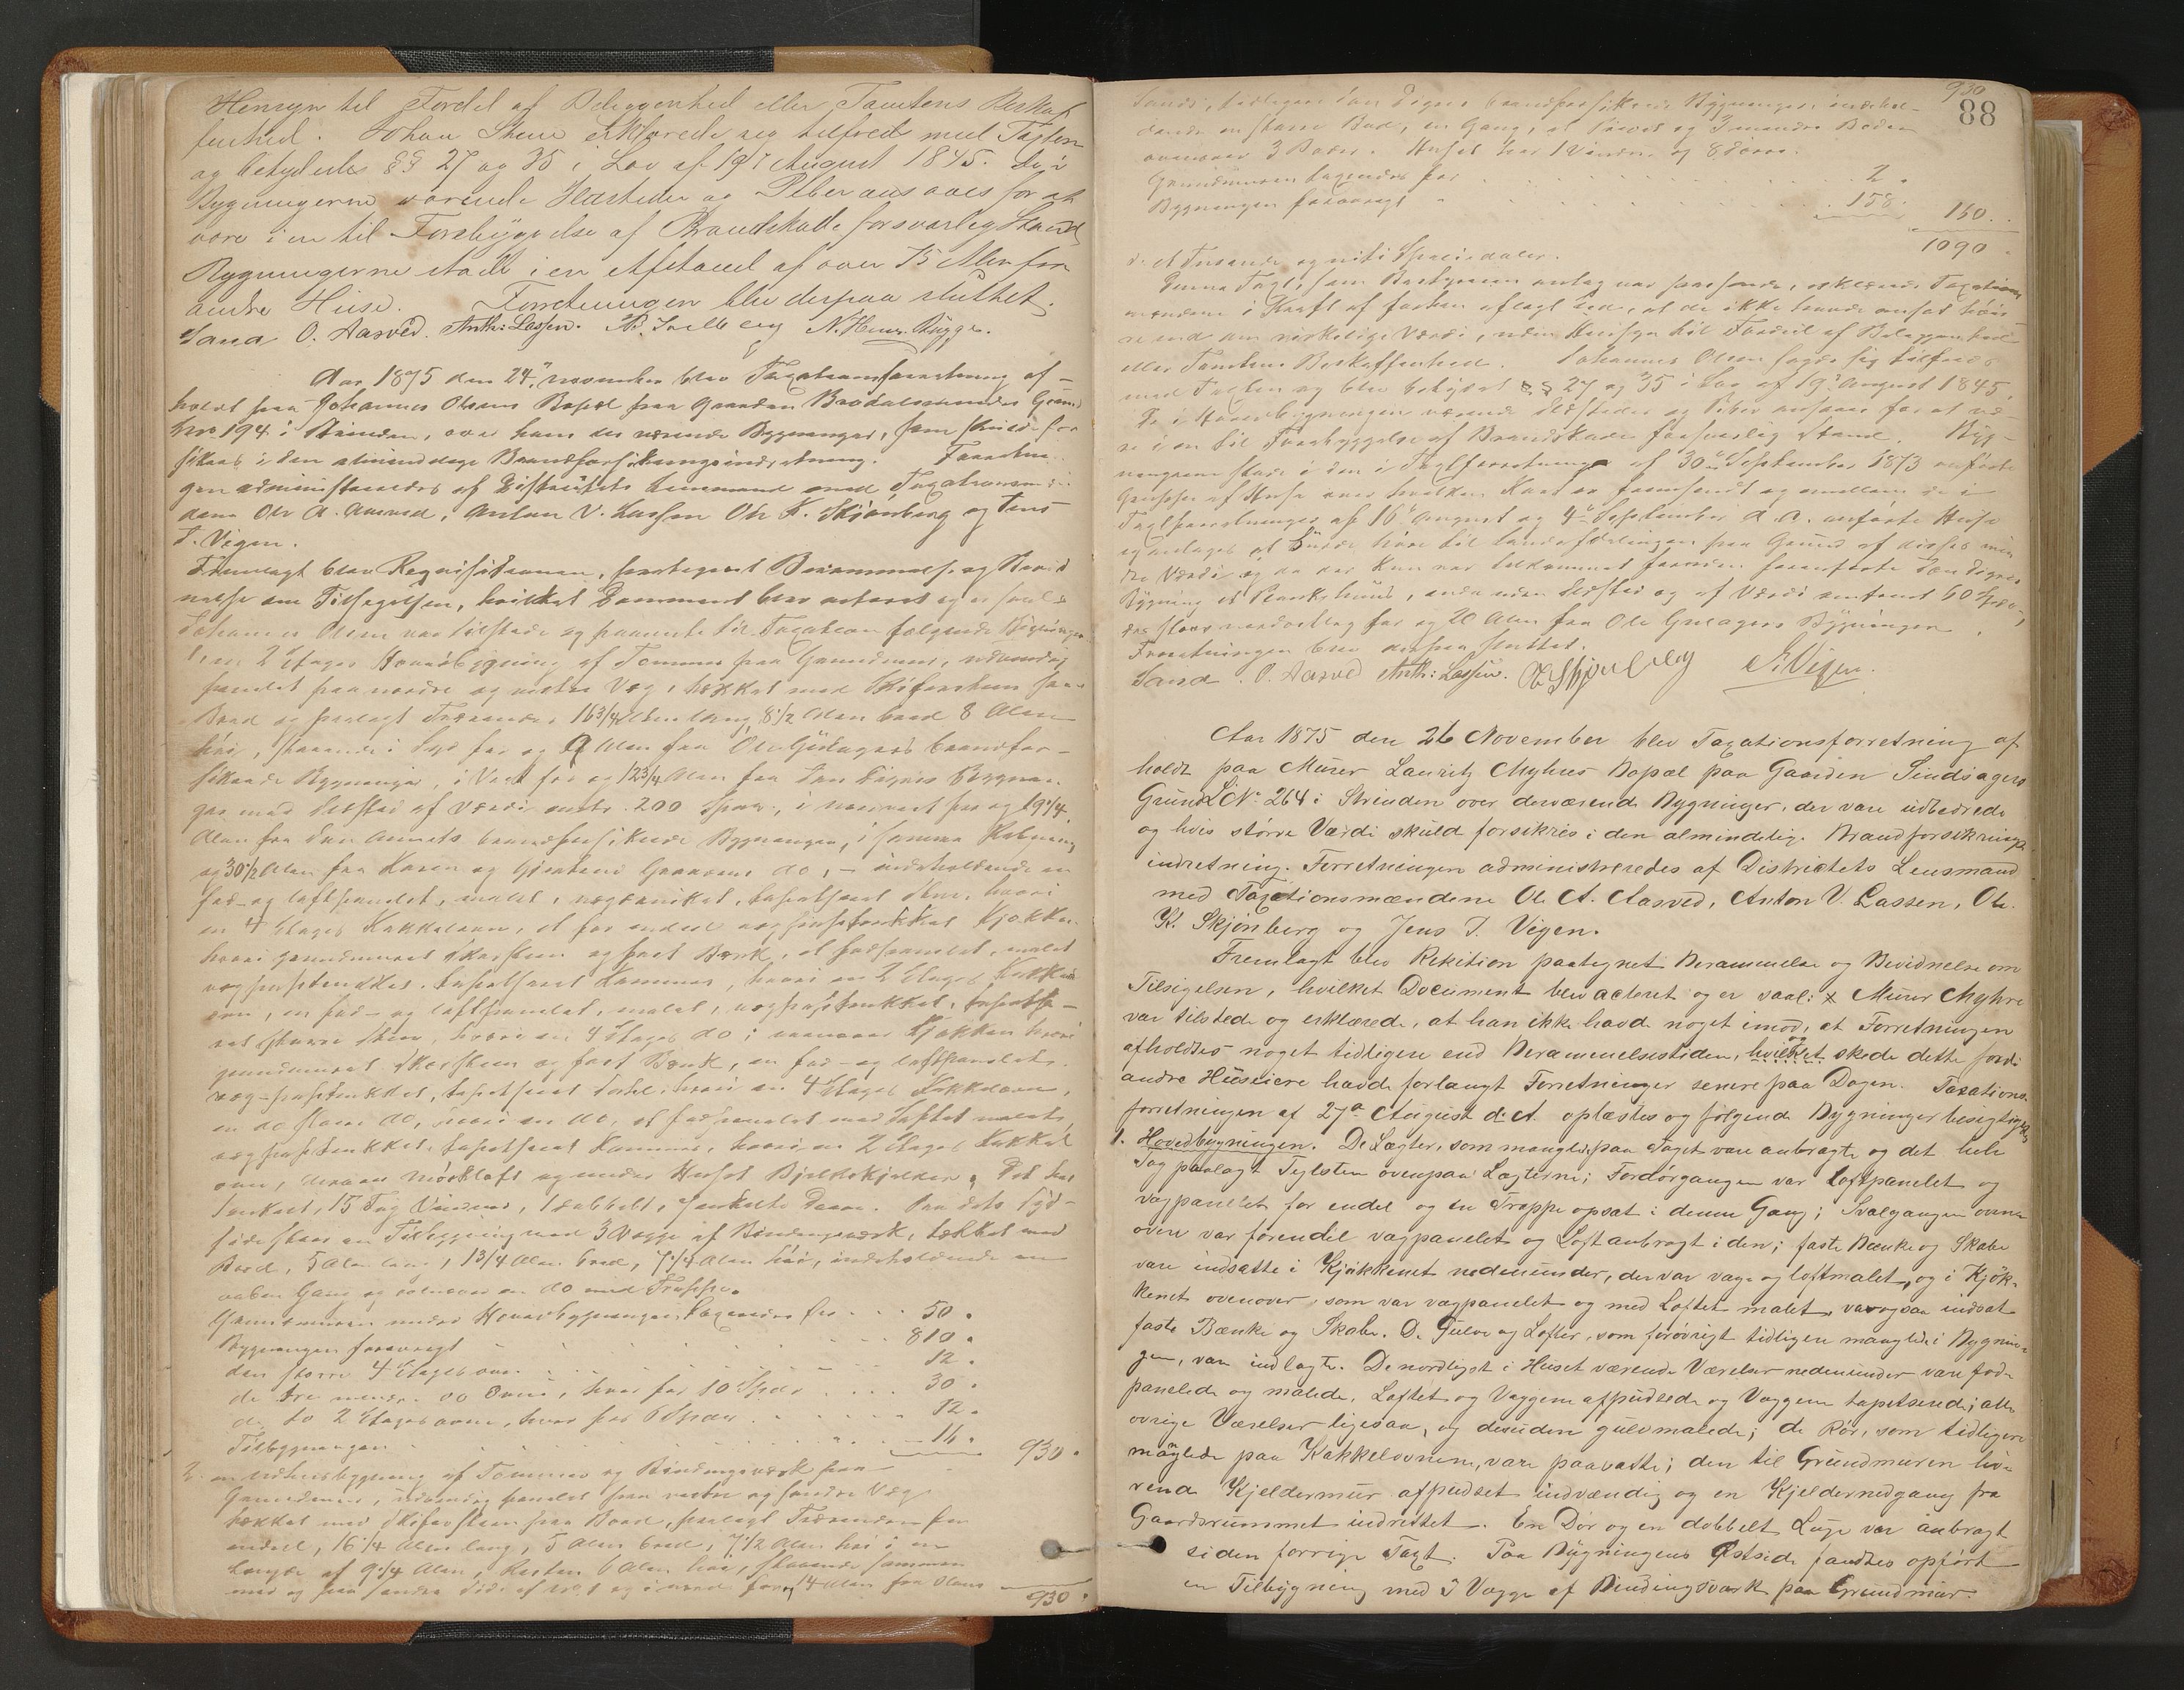 Hensyn til Fordel af Beliggenhed eller Tomtens Beskaf
fenhed. Johan Steen erklærede sig tilfreds med Taxten
og betydedes §§ 27 og 35 i Lov af 19d August 1845. De i
Bygningerne værende Ildsteder og Piber ansaaes for at
være i en til Forebyggelse af Brandskade forsvarlig Stand
Bygningerne stode i en Afstand af over 75 Alen fra
andre Huse. Forretningen blev derpaa sluttet.
Sand O. Aasved. Anth: Lassen. N. Henr. Bygge.
Aar 1875 den 24. november blev Taxationsforretning af-
holdt paa Johannes Olsens Bopæl paa Gaarden Brødalsmundes Grund
No 194 i Strinden, over hans der værende Bygninger, som skulde for
sikres i den almindelige Brandforsikringsindretning. Forretnin
gen administreredes af Districtets Lensmand med Taxationsmæn
dene Ole A. Aasved, Anton V. Lassen Ole K. Skjønberg og Jens
J. Vigen.
Fremlagt blev Requisitionen, paategnet Berammelse og Bevid
nelse om Tilsigelsen, hvilket Document blev acteret og er saal:
Johannes Olsen var tilstede og paaviste til Taxation følgende Bygninger
1, en 2 Etages Hovedbygning af Tømmer paa Grundmur, udvendig
panelet paa nordre og vestre Væg, tækket med Skifersteen paa
Bord og paalagt Trærender 16 3/4 Alen lang, 8 1/2 Alen bred 8 Alen
høi, staaende i Syd for og 9 Alen fra Ole Gulagers brandfor-
sikrede Bygninger, i Vest for og 12 3/4 Alen fra Iver Digres Bygnin-
ger med Ildsted af Værdi omtr. 200 Spdr., i nordvest for og 19 1/4
Alen fra Iver brandforsikrede Bygninger, i samme Retning
og 30 1/2 Alen fra Karen og do, – indeholdende en
fod- og loftpanelet, malet, vægpanelet, tapetseret Stue, hvori
en 4 Etages Kakkelovn, et for endeel vægpaptrukket Kjøkken
hvori grundmuret Skorsteen og fast Bænk, et fodpanelet, malet
vægpaptrukket, tapetseret Kammer, hvori en 2 Etages Kakkel
ovn, en fod- og loftpanelet, malet, vægpaptrukket, tapetse-
ret større Stue, hvori en 4 Etages do; ovenover Kjøkken hvori
grundmuret Skorsteen og fast Bænk, en fod- og loftpanelet
væg-paptrukket, tapetseret hvori en 4 Etages Kakkelovn,
en do større do, hvori en do, et fodpanelet med Loftet malet,
vægpaptrukket, tapetseret Kammer, hvori en 2 Etages Kakkel
ovn, derover mørkloft og under Huset Bjelkekjelder. Det har
15 Fag Vinduer, 1 dobbelt, enkelte Døre. Paa dets Syd-
side staar en Tilbygning med 3 Vægge af Bindingsværk, tækket med
Bord, 5 Alen lang, 1 3/4 Alen bred, 7 1/4 Alen høi, indeholdende en
aaben Gang og ovenover en do med Trappe.
Grundmuren under Hovedbygningen taxeredes for . . . 50.
Bygningen forøvrigt . . . 810.
den større 4 Etages ovn . . . 12.
de tre mindre do Ovne, hver for 10 Spdr . . . 30.
de to 2 Etages ovne, hver for 6 Spdr . . . 12.
Tilbygningen . . . 16. 930.
2. en Udhusbygning af Tømmer og Bindingsværk paa
Grundmur, udvendig panelet paa vestre og søndre Væg
tækket med Skifersteen paa Bord, paalagt Trærender for
endeel, 16 1/4 Alen lang, 5 Alen bred, 7 1/2 Alen høi i en
Længde af 9 1/4 Alen, Resten 6 Alen høi, staaende sammen
med og paa søndre Side af 14 Alen fra Olaus
930.
930
88
Sands, tidligere Iver Digres brandforsikrede Bygninger, indehol-
dende en større Bod, en Gang, et Privet og 3 mindre Boder
ovenover 3 Boder. Huset har 1 Vindue og 8 Døre.
Grundmuren taxeredes for . . . 2.
Bygningen forøvrigt " . . . 158. 160.
1090.
d. et Tusende og niti Speciedaler.
Denne Taxt, som Bestyreren antog var passende, erklærede Taxations
mændene i Kraft af forhen aflagt Eed, at de ikke kunde ansat høi
re end den virkelige Værdi, uden Hensyn til Fordeel af Beliggenhed
eller Tomtens Beskaffenhed. Johannes Olsen sagde sig tilfreds
med Taxten og blev betydet §§ 27 og 35 i Lov af 19d August 1845.
De i Hovedbygningen værende Ildsteder og Piber ansaaes for at væ-
re i en til Forebyggelse af Brandskade forsvarlig Stand. Byg-
ningerne stode i den i Taxtforretninger af 30d September 1873 anførte
Gruppe af Huse over hvilken Kart er fremsendt og mellem de i
Taxtforretninger af 16d August og 4d September d. A. anførte Huse
og antages at burde høre til Landafdelingen paa Grund af disses min
dre Værdi og da der kun var tilkommet foruden foranførte Iver Digres
Bygning et Planskehuus, endnu uden Ildsted og af Værdi omtrent 60 Spdr.,
der staar nordvestlig for og 20 Alen fra Ole Gulagers Bygninger.
Forretningen blev derpaa sluttet.
Sand. O. Aasved Anth: Lassen. O K Skjønberg J. Vigen.
Aar 1875 den 26 November blev Taxationsforretning af
holdt paa Murer Lauritz Myhres Bopæl paa Gaarden Sindsagers
Grund LN: 264 i Strinden over derværende Bygninger, der vare udbedrede
og hvis større Værdi skuld forsikres i den almindelig. Brandforsikrings
indretning. Forretningen administreredes af Districtets Lensmand
med Taxationsmændene Ole A. Aasved, Anton V. Lassen, Ole
K. Skjønberg og Jens J. Vigen.
Fremlagt blev Rekition paategnet Berammelse og Bevidnelse om
Tilsigelsen, hvilket Document blev acteret og er saal: x Murer Myhre
var tilstede og erklærede, at han ikke havde noget imod, at Forretningen
afholdtes noget tidligere end Berammelsestiden, hvilket og skede dette fordi
andre Huseiere havde forlangt Forretninger senere paa Dagen. Taxations-
forretningen af 27d August d. A. oplæstes og følgende Bygninger besigtigedes
1. Hovedbygningen. De Lægter, som manglede paa Taget vare anbragte og det hele
Tag paalagt Teglsten ovenpaa Lægterne; Fordørgangen var loftpanelet og
vægpanelet for endel og en Trappe opsat i denne Gang; Svalgangen oven-
over var forendel vægpanelet og Loft anbragt i den; faste Bænke og Skabe
vare indsatte i Kjøkkenet nedenunder, der var væg- og loftmalet, og i Kjøk-
kenet ovenover, som var vægpanelet og med Loftet malet, var ogsaa indsat
faste Bænke og Skabe. De Gulve og Lofter, som forøvrigt tidligere manglede i Bygnin-
gen, vare indlagte. De nordligst i Huset værende Værelser nedenunder vare fod-
panelede og malede, Loftet og Væggene afpudsede og Væggene tapetserede; alle
øvrige Værelser ligesaa, og desuden gulvmalede; de Rør, som tidligere
manglede paa Kakkelovnene, vare paasatte; den til Grundmuren hø-
rende Kjeldermur afpudset indvendig og en Kjeldernedgang fra
Gaardsrummet indrettet. En Dør og en dobbelt Luge var anbragt
siden forrige Taxt. Paa Bygningens Østside fandtes opført
en Tilbygning med 3 Vægge af Bindingsværk paa Grundmur.